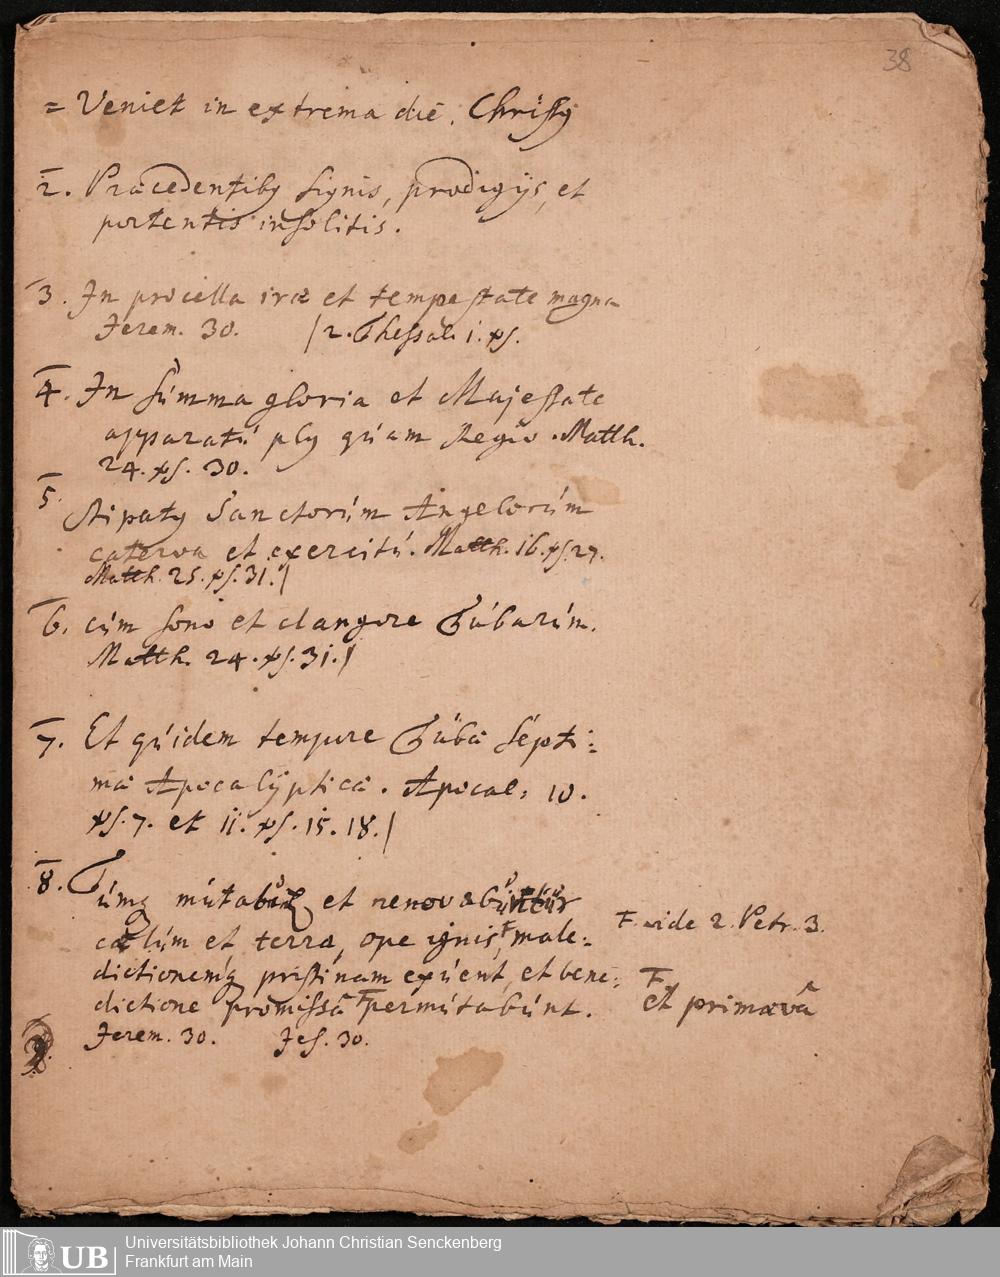 38
= Veniet in extrema die. Christꝰ
2. Præcedentibꝰ signis, prodigijs, et
portentis insolitis.
3. In procella iræ et tempestate magna
Jerem. 30. | 2. Thessal. 1. ꝟs.
4. In súmma gloria et Majestate
apparatú plꝰ qúam Regio. Matth.
24. ꝟs. 30.
5. Stipatꝰ Sanctorúm Angelorúm
caterva et exercitú. Matth. 16. ꝟs. 27.
Matth. 25. ꝟs. 31. |
6. cúm sono et clangore Túbarúm.
Matth. 24. ꝟs. 31. |
7. Et qúidem tempore Túbâ Septi:
mâ Apocalÿpticâ. Apocal: 10.
ꝟs. 7. et 11. ꝟs. 15. 18. |
8. Túmq et renovabúntúr
cælúm et terra, ope ignis, F male:
dictionemq pristinam exúent, et bene:
dictione promissâ F permútabúnt.
Jerem. 30. Jes. 30.
F. vide 2. Petr. 3.
F
et primævâ
9.
UB
Universitätsbibliothek Johann Christian Senckenberg
Frankfurt am Main